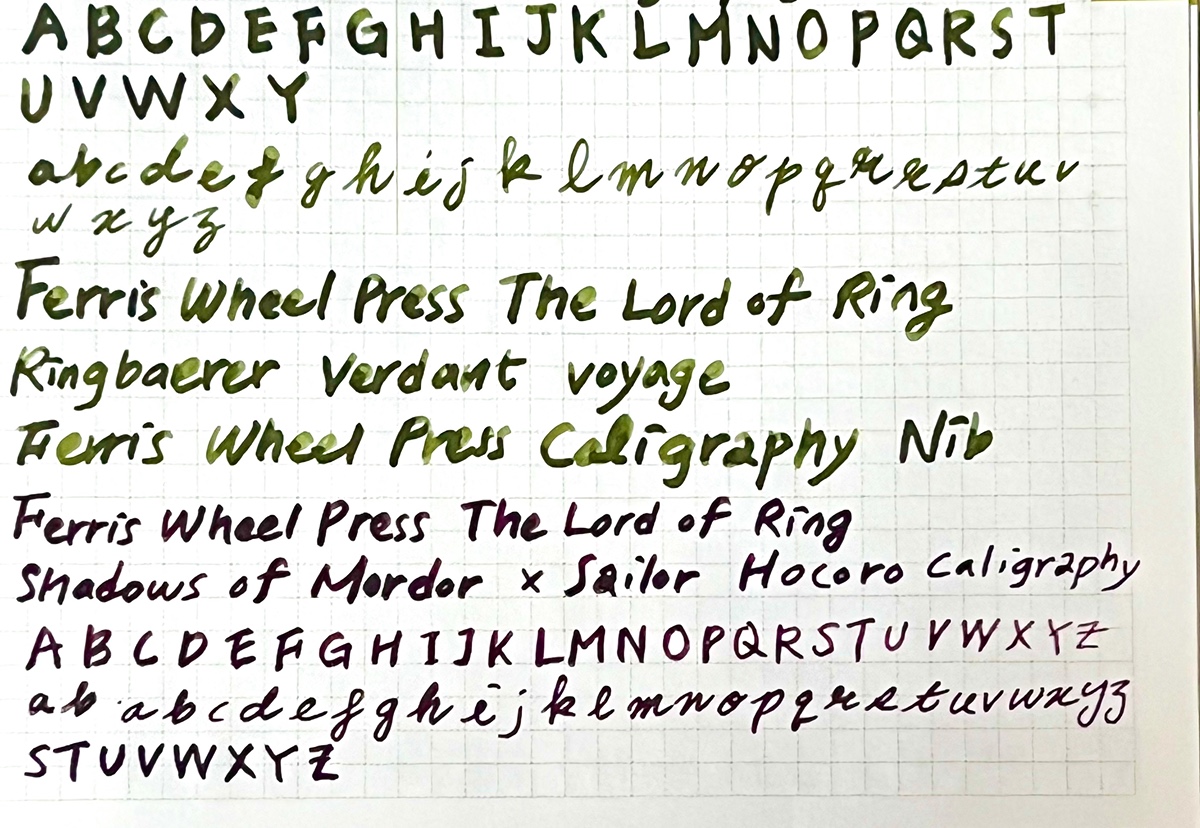 A B C D E F G H I J K L M N O P Q R S T
U V W X Y
a b c d e f g h i j k l m n o p q r r s t u v
w x y z
Ferris Wheel Press The Lord of Ring
Ringbaerer Verdant voyage
Ferris Wheel Press Caligraphy Nib
Ferris Wheel Press The Lord of Ring
Shadows of Mordor x Sailor Hocoro Caligraphy
A B C D E F G H I J K L M N O P Q R S T U V W X Y Z
a b a b c d e f g h i j k l m n o p q r s t u v w x y z
S T U V W X Y Z